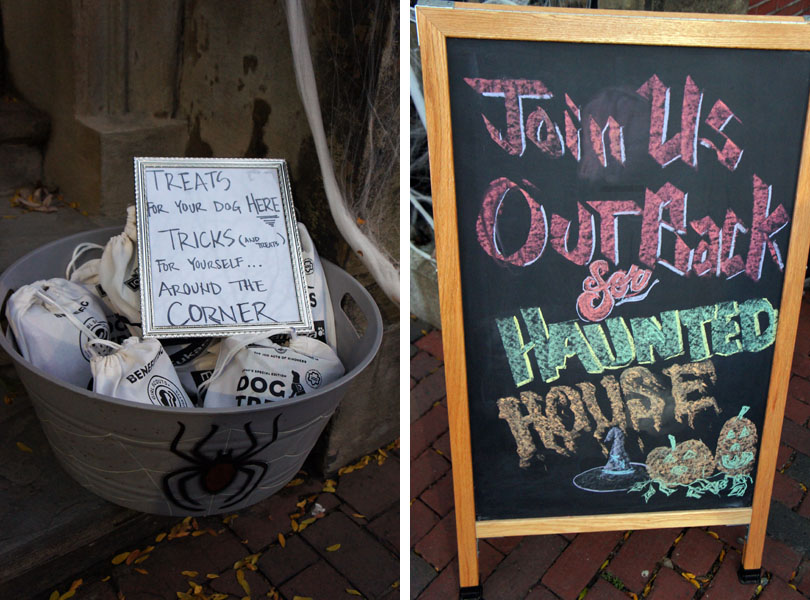 TREATS
FOR YOUR DOG, HERE
TRICKS (AND TREATS)
FOR YOURSELF...
AROUND THE
CORNER
DOG
Join Us
Out Back
for
HAUNTED
HOUSE